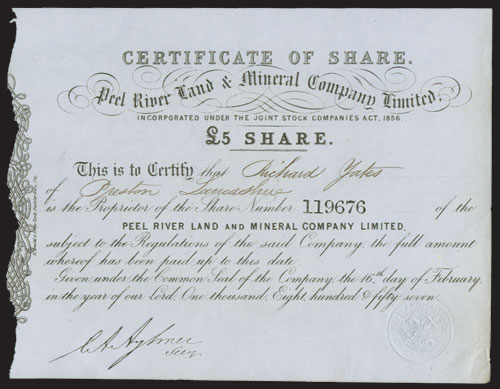 CERTIFICATE OF SHARE.
Peel River Land & Mineral Company Limited.
INCORPORATED UNDER THE JOINT STOCK COMPANIES ACT, 1856.
£5 SHARE.
This is to Certify that Richard Yates
of Preston Lancashire
is the Proprietor of the Share Number 119676 of the
PEEL RIVER LAND AND MINERAL COMPANY LIMITED,
subject to the Regulations of the said Company, the full amount
whereof has been paid up to this date.
Given under the Common Seal of the Company, the 16th day of February
in the year of our Lord, One thousand, Eight hundred & fifty seven.
C A Aylmer
Secy